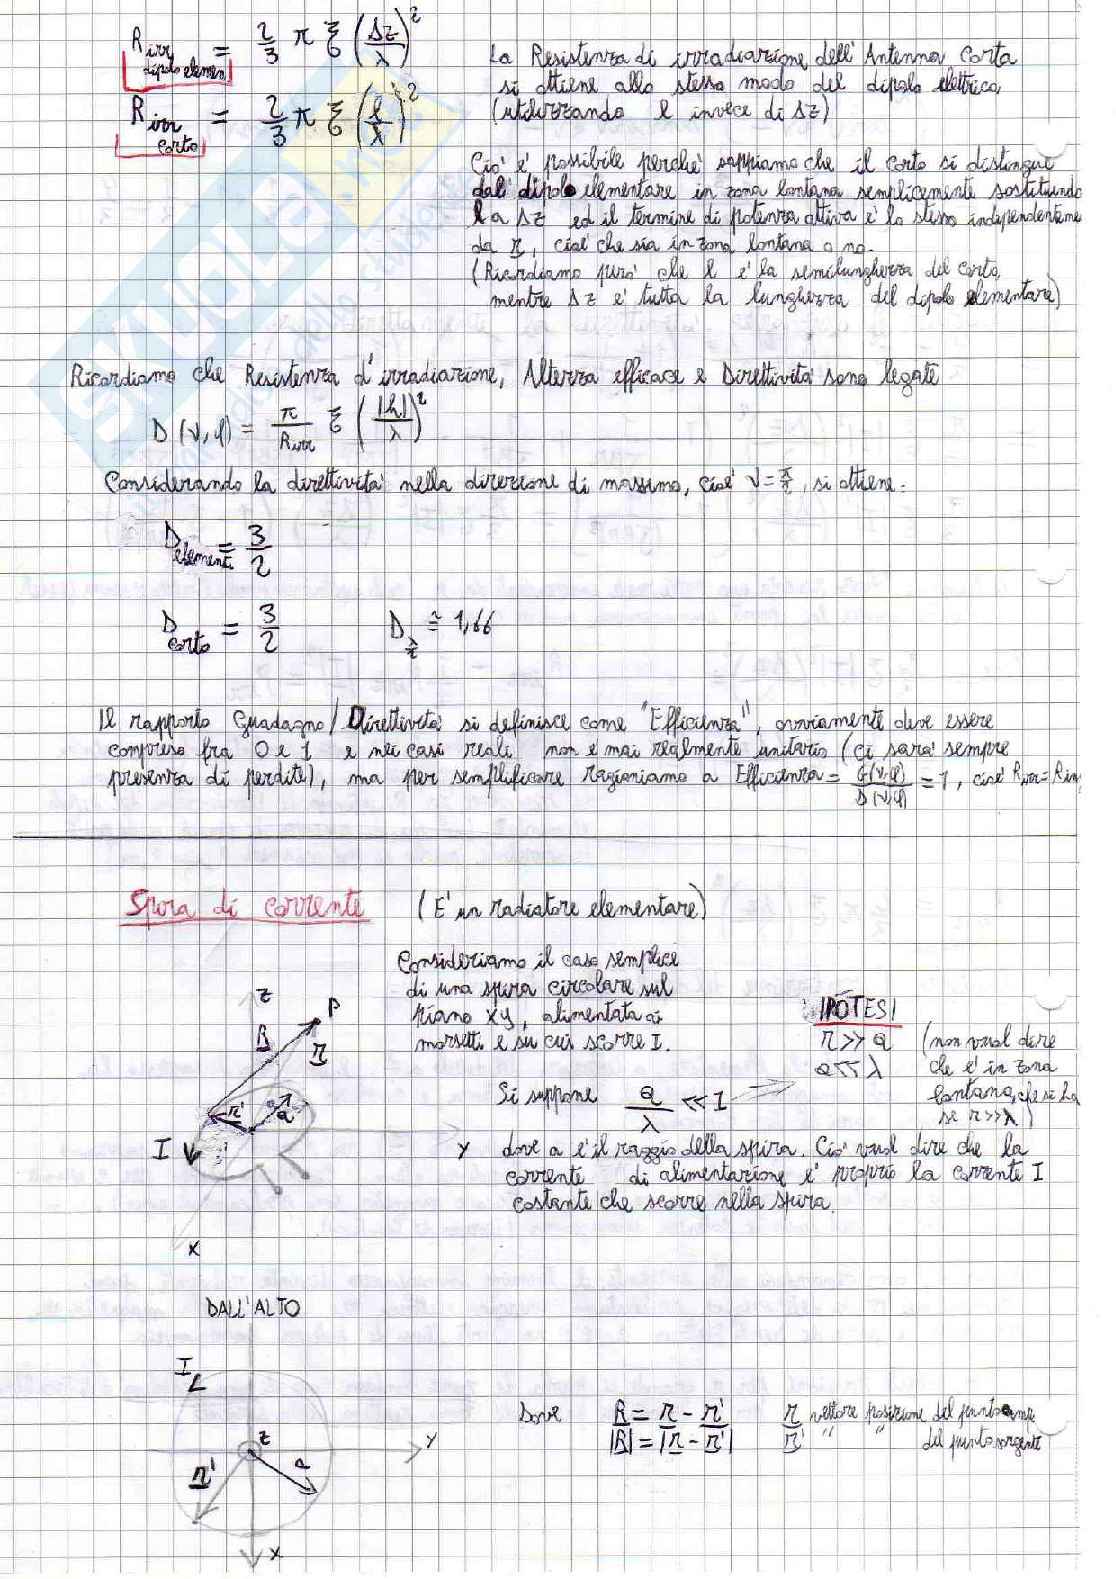 R irr dipolo elemen = 2/3 π ξ (Δz/λ)²
La Resistenza di irradiazione dell' Antenna Corta
si ottiene allo stesso modo del dipolo elettrico
(utilizzando l invece di Δz)
R irr corto = 2/3 π ξ (l/λ)²
Ciò è possibile perchè sappiamo che il corto si distingue
dal dipolo elementare in zona lontana semplicemente sostituendo
l a Δz ed il termine di potenza attiva è lo stesso indipendenteme
da r, cioè che sia in zona lontana o no.
(Ricordiamo però che l è la semilunghezza del corto,
mentre Δz è tutta la lunghezza del dipolo elementare)
Ricordiamo che Resistenza d'irradiazione, Altezza efficace e Direttività sono legate
D(ν,φ) = π/R irr ξ (|h|/λ)²
Considerando la direttività nella direzione di massimo, cioè ν = π/2, si ottiene:
D element = 3/2
D corto = 3/2 D λ/2 ≅ 1,66
Il rapporto Guadagno/Direttività si definisce come "Efficienza", ovviamente deve essere
compreso fra 0 e 1 e nei casi reali non è mai realmente unitario (ci sarà sempre
presenza di perdite), ma per semplificare ragioniamo a Efficienza = G(ν,φ)/D(ν,φ) = 1, cioè R irr = R in
Spira di corrente (E' un radiatore elementare)
Consideriamo il caso semplice
di una spira circolare sul
piano XY, alimentata ai
morsetti e su cui scorre I.
z
P
R
r
r'
a
I
y
x
IPOTESI
r >> a (non vuol dire
a << λ che è in zona
lontana, che si ha
se r >> λ)
Si suppone a/λ << 1
dove a è il raggio della spira. Ciò vuol dire che la
corrente di alimentazione è proprio la corrente I
costante che scorre nella spira.
DALL'ALTO
I
z
y
r'
a
x
Dove R = r - r' r vettore posizione del punto
|R| = |r - r'| r' " " del punto sorgente